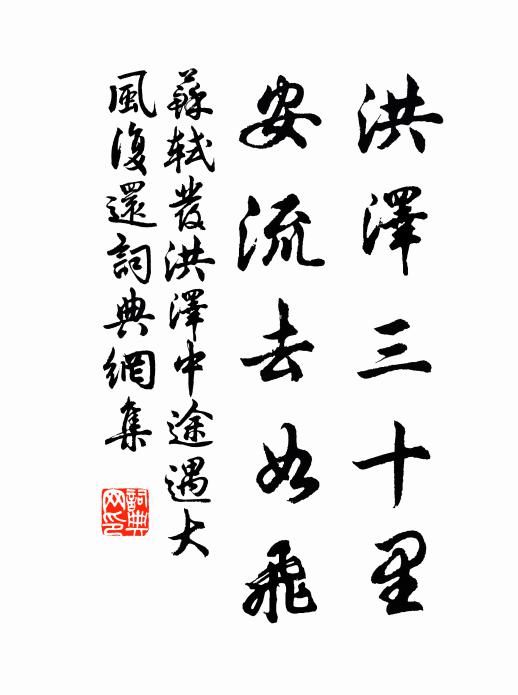 洪澤三十里
安流去如飛
蘇軾發洪澤中途遇大
風復還詞典網集
詞典
网印